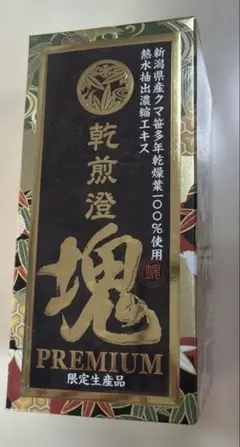 新潟県産クマ笹多年乾燥葉一〇〇%使用
熱水抽出濃縮エキス
乾煎澄
塊
PREMIUM
限定生産品